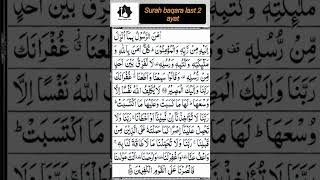 Surah baqara last 2
ayat
اٰمَنَ الرَّسُوْلُ بِمَاۤ اُنْزِلَ
اِلَیْهِ مِنْ رَّبِّهٖ وَالْمُؤْمِنُوْنَ ؕ كُلٌّ اٰمَنَ بِاللّٰهِ وَ
مَلٰٓئِكَتِهٖ وَكُتُبِهٖ وَرُسُلِهٖ ۫ لَا نُفَرِّقُ بَیْنَ اَحَدٍ
مِّنْ رُّسُلِهٖ ۫ وَقَالُوْا سَمِعْنَا وَاَطَعْنَا ٭۫ غُفْرَانَكَ
رَبَّنَا وَاِلَیْكَ الْمَصِیْرُ لَا یُكَلِّفُ اللّٰهُ نَفْسًا اِلَّا
وُسْعَهَا ؕ لَهَا مَا كَسَبَتْ وَعَلَیْهَا مَا اكْتَسَبَتْ ؕ
رَبَّنَا لَا تُؤَاخِذْنَاۤ اِنْ نَّسِیْنَاۤ اَوْ اَخْطَاْنَا ۚ رَبَّنَا وَلَا
تَحْمِلْ عَلَیْنَاۤ اِصْرًا كَمَا حَمَلْتَهٗ عَلَی الَّذِیْنَ مِنْ
قَبْلِنَا ۚ رَبَّنَا وَلَا تُحَمِّلْنَا مَا لَا طَاقَةَ لَنَا بِهٖ ۚ
وَاعْفُ عَنَّا ٝ وَاغْفِرْ لَنَا ٝ وَارْحَمْنَا ٝ اَنْتَ مَوْلٰىنَا
فَانْصُرْنَا عَلَی الْقَوْمِ الْكٰفِرِیْنَ